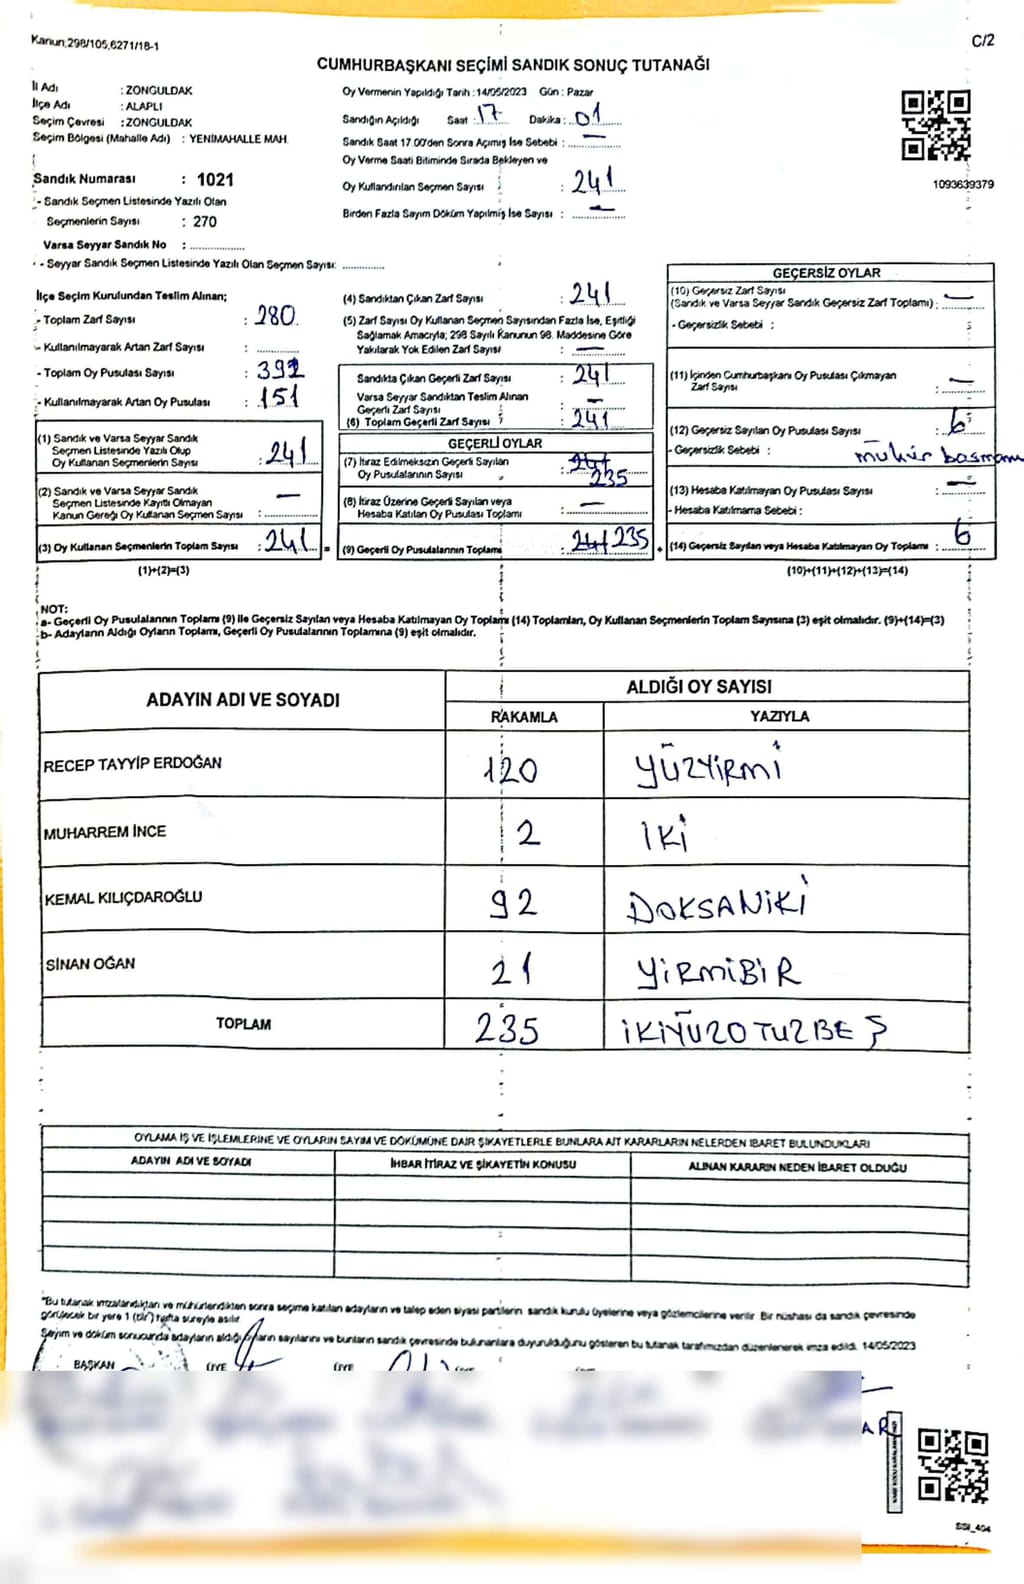 Kanun,298/105,6271/18-1
C/2
CUMHURBAŞKANI SEÇİMİ SANDIK SONUÇ TUTANAĞI
İl Adı : ZONGULDAK
İlçe Adı : ALAPLI
Seçim Çevresi : ZONGULDAK
Seçim Bölgesi (Mahalle Adı) : YENİMAHALLE MAH.
Sandık Numarası : 1021
- Sandık Seçmen Listesinde Yazılı Olan
Seçmenlerin Sayısı : 270
Varsa Seyyar Sandık No :
- Seyyar Sandık Seçmen Listesinde Yazılı Olan Seçmen Sayısı:
Oy Vermenin Yapıldığı Tarih : 14/05/2023 Gün : Pazar
Sandığın Açıldığı Saat : 17 Dakika : 01
Sandık Saat 17.00'den Sonra Açımış İse Sebebi : —
Oy Verme Saati Bitiminde Sırada Bekleyen ve
Oy Kullandırılan Seçmen Sayısı : 241
Birden Fazla Sayım Döküm Yapılmış İse Sayısı : —
1093639379
İlçe Seçim Kurulundan Teslim Alınan;
- Toplam Zarf Sayısı : 280
- Kullanılmayarak Artan Zarf Sayısı :
- Toplam Oy Pusulası Sayısı : 392
- Kullanılmayarak Artan Oy Pusulası : 151
(1) Sandık ve Varsa Seyyar Sandık
Seçmen Listesinde Yazılı Olup
Oy Kullanan Seçmenlerin Sayısı : 241
(2) Sandık ve Varsa Seyyar Sandık
Seçmen Listesinde Kayıtlı Olmayan
Kanun Gereği Oy Kullanan Seçmen Sayısı : —
(3) Oy Kullanan Seçmenlerin Toplam Sayısı : 241 =
(1)+(2)=(3)
(4) Sandıktan Çıkan Zarf Sayısı : 241
(5) Zarf Sayısı Oy Kullanan Seçmen Sayısından Fazla İse, Eşitliği
Sağlamak Amacıyla; 298 Sayılı Kanunun 98. Maddesine Göre
Yakılarak Yok Edilen Zarf Sayısı : —
Sandıkta Çıkan Geçerli Zarf Sayısı : 241
Varsa Seyyar Sandıktan Teslim Alınan
Geçerli Zarf Sayısı : —
(6) Toplam Geçerli Zarf Sayısı : 241
GEÇERLİ OYLAR
(7) İtiraz Edilmeksizin Geçerli Sayılan
Oy Pusulalarının Sayısı : 241 235
(8) İtiraz Üzerine Geçerli Sayılan veya
Hesaba Katılan Oy Pusulası Toplamı : —
(9) Geçerli Oy Pusulalarının Toplamı : 241 235 +
GEÇERSİZ OYLAR
(10) Geçersiz Zarf Sayısı
(Sandık ve Varsa Seyyar Sandık Geçersiz Zarf Toplamı) : —
- Geçersizlik Sebebi :
(11) İçinden Cumhurbaşkanı Oy Pusulası Çıkmayan
Zarf Sayısı : —
(12) Geçersiz Sayılan Oy Pusulası Sayısı : 6
- Geçersizlik Sebebi : mühür basmamı
(13) Hesaba Katılmayan Oy Pusulası Sayısı : —
- Hesaba Katılmama Sebebi :
(14) Geçersiz Sayılan veya Hesaba Katılmayan Oy Toplamı : 6
(10)+(11)+(12)+(13)=(14)
NOT:
a- Geçerli Oy Pusulalarının Toplamı (9) ile Geçersiz Sayılan veya Hesaba Katılmayan Oy Toplamı (14) Toplamları, Oy Kullanan Seçmenlerin Toplam Sayısına (3) eşit olmalıdır. (9)+(14)=(3)
b- Adayların Aldığı Oyların Toplamı, Geçerli Oy Pusulalarının Toplamına (9) eşit olmalıdır.
ADAYIN ADI VE SOYADI ALDIĞI OY SAYISI
RAKAMLA YAZIYLA
RECEP TAYYİP ERDOĞAN 120 YÜZYİRMİ
MUHARREM İNCE 2 İKİ
KEMAL KILIÇDAROĞLU 92 DOKSANİKİ
SİNAN OĞAN 21 YİRMİBİR
TOPLAM 235 İKİYÜZOTUZBEŞ
OYLAMA İŞ VE İŞLEMLERİNE VE OYLARIN SAYIM VE DÖKÜMÜNE DAİR ŞİKAYETLERLE BUNLARA AİT KARARLARIN NELERDEN İBARET BULUNDUKLARI
ADAYIN ADI VE SOYADI İHBAR İTİRAZ VE ŞİKAYETİN KONUSU ALINAN KARARIN NEDEN İBARET OLDUĞU
"Bu tutanak imzalandıktan ve mühürlendikten sonra seçime katılan adayların ve talep eden siyasi partilerin sandık kurulu üyelerine veya gözlemcilerine verilir. Bir nüshası da sandık çevresinde
görülecek bir yere 1 (bir) hafta süreyle asılır
Sayım ve döküm sonucunda adayların aldığı oyların sayılarını ve bunların sandık çevresinde bulunanlara duyurulduğunu gösteren bu tutanak tarafımızdan düzenlenerek imza edildi. 14/05/2023
BAŞKAN ÜYE ÜYE
AR
SSI_404